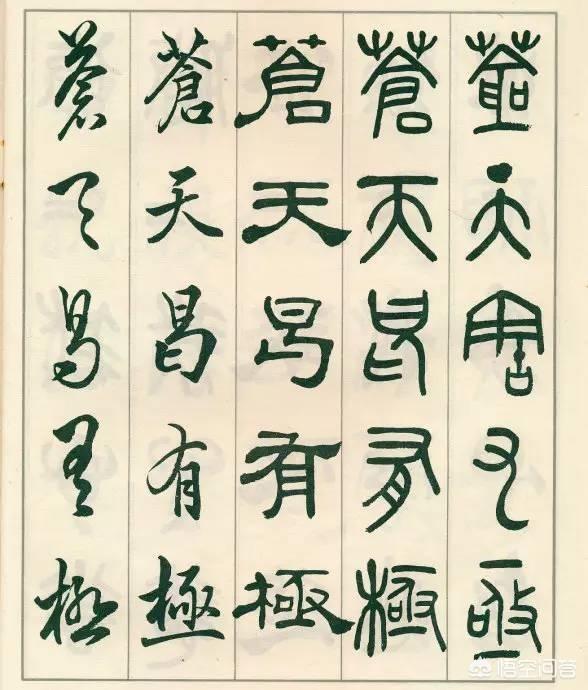 蒼天曷有極
蒼天曷有極
蒼天曷有極
蒼天曷有極
蒼天曷有極
悟空问答